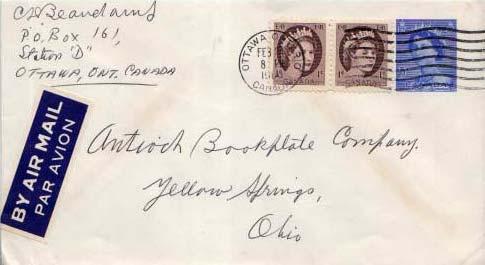 P.O. Box 161,
Station "D"
OTTAWA, ONT. CANADA
OTTAWA
FEB
8
CANADA
CANADA
CANADA
BY AIR MAIL
PAR AVION
Antioch Bookplate Company.
Yellow Springs,
Ohio